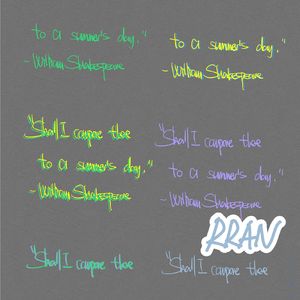 to a summer's day."
- William Shakespeare
"Shall I compare thee
to a summer's day."
- William Shakespeare
"Shall I compare thee
to a summer's day."
- William Shakespeare
"Shall I compare thee
to a summer's day."
- William Shakespeare
"Shall I compare thee
"Shall I compare thee
RRAN